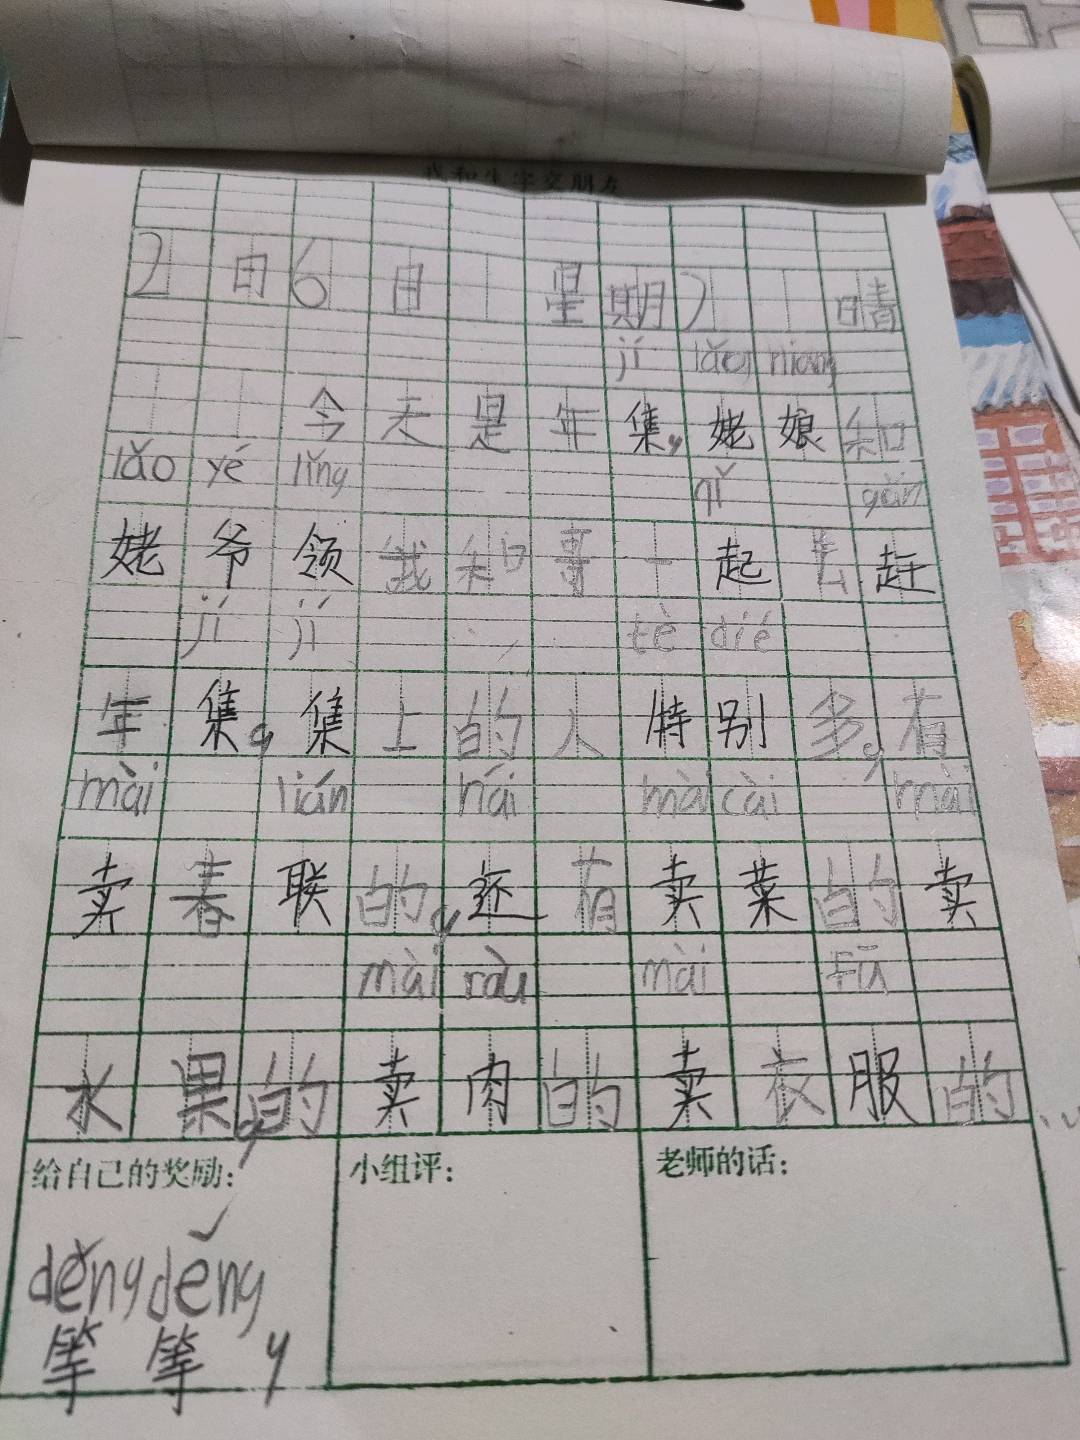 我和生字交朋友
2月6日 星期2 晴
jí lǎo niang
今天是年集，姥娘和
lǎo yé lǐng qǐ gǎn
姥爷领我和哥一起去赶
jí jí tè dié
年集，集上的人特别多，有
mài lián hái mài cài mài
卖春联的，还有卖菜的卖
mài ròu mài fū
水果的，卖肉的卖衣服的……
给自己的奖励： 小组评： 老师的话：
děng děng
等等，